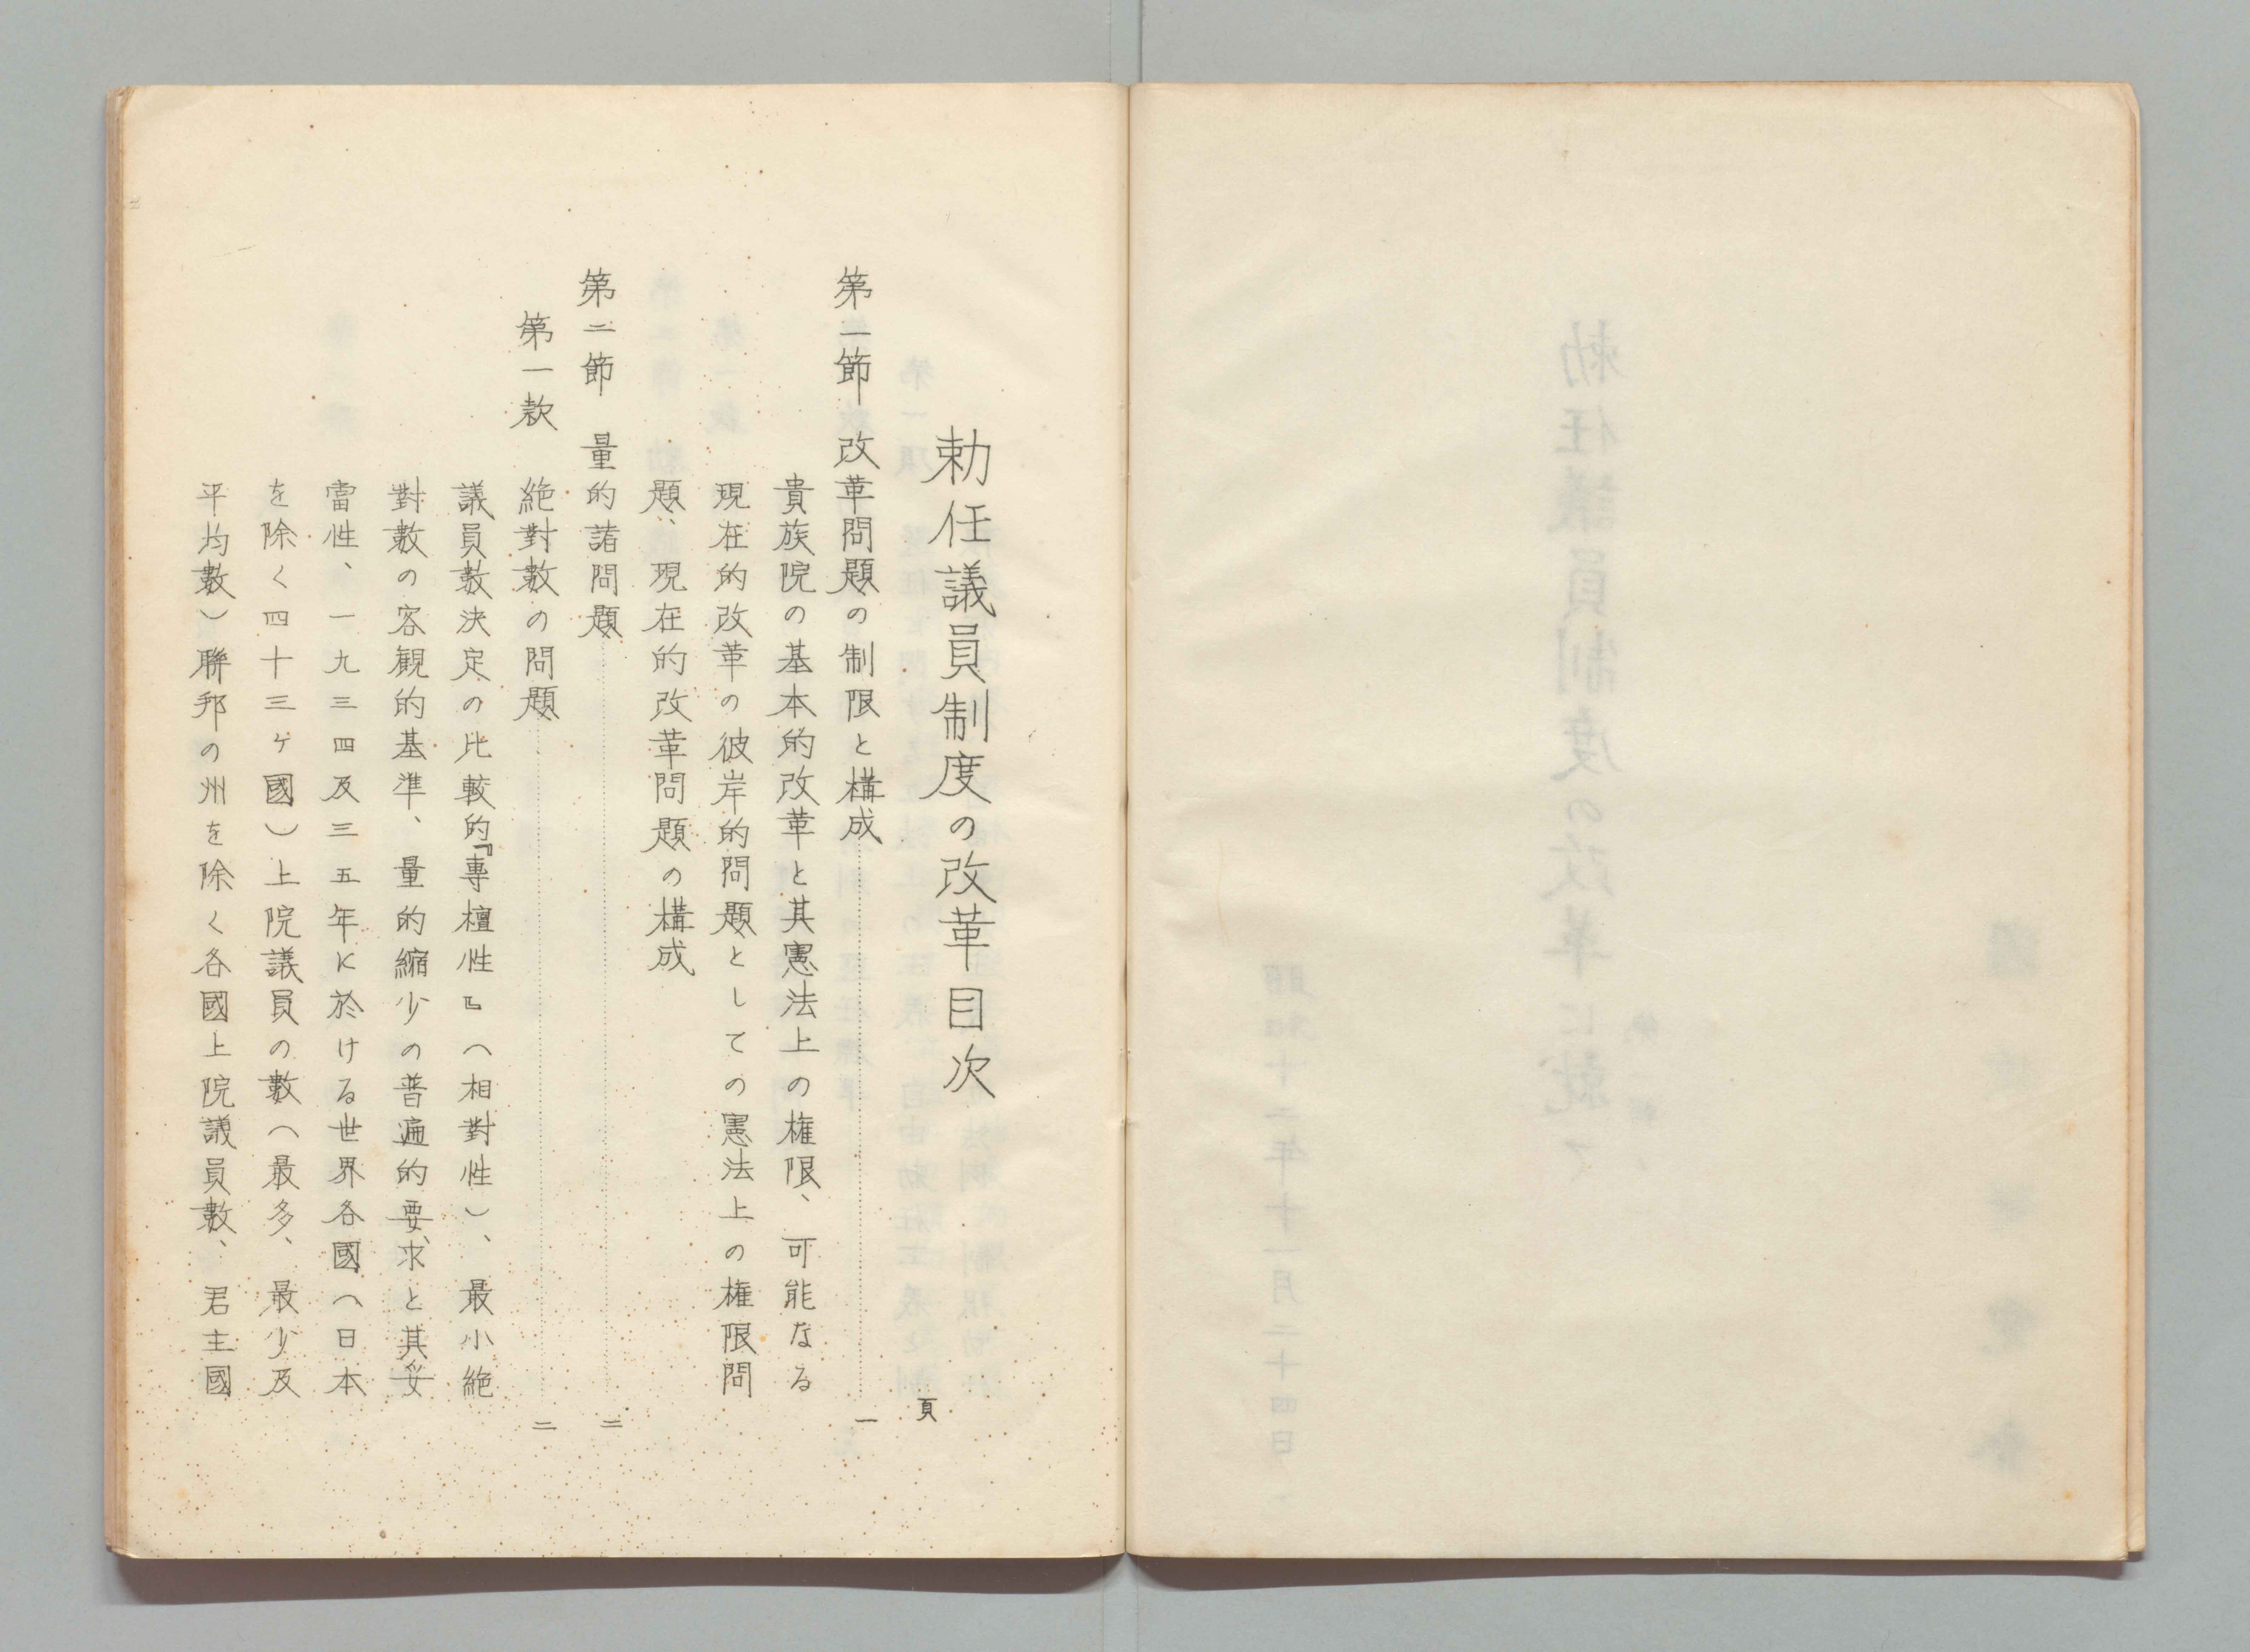 勅任議員制度の改革目次
頁
第一節　改革問題の制限と構成……一
貴族院の基本的改革と其憲法上の権限、可能なる
現在的改革の彼岸的問題としての憲法上の権限問
題、現在的改革問題の構成
第二節　量的諸問題……二
第一款　絶對數の問題……二
議員數決定の比較的『專檀性』（相對性）、最小絶
對數の客観的基準、量的縮少の普遍的要求と其妥
當性、一九三四及三五年に於ける世界各國（日本
を除く四十三ヶ國）上院議員の數（最多、最少及
平均數）聯邦の州を除く各國上院議員數、君主國